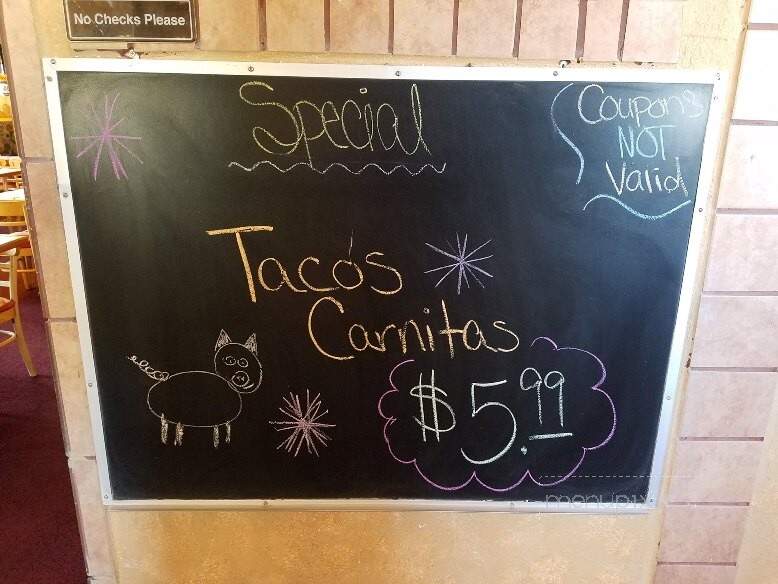 No Checks Please
Special
Coupons
NOT
Valid
Tacós
Carnitas
$5.99
menupix